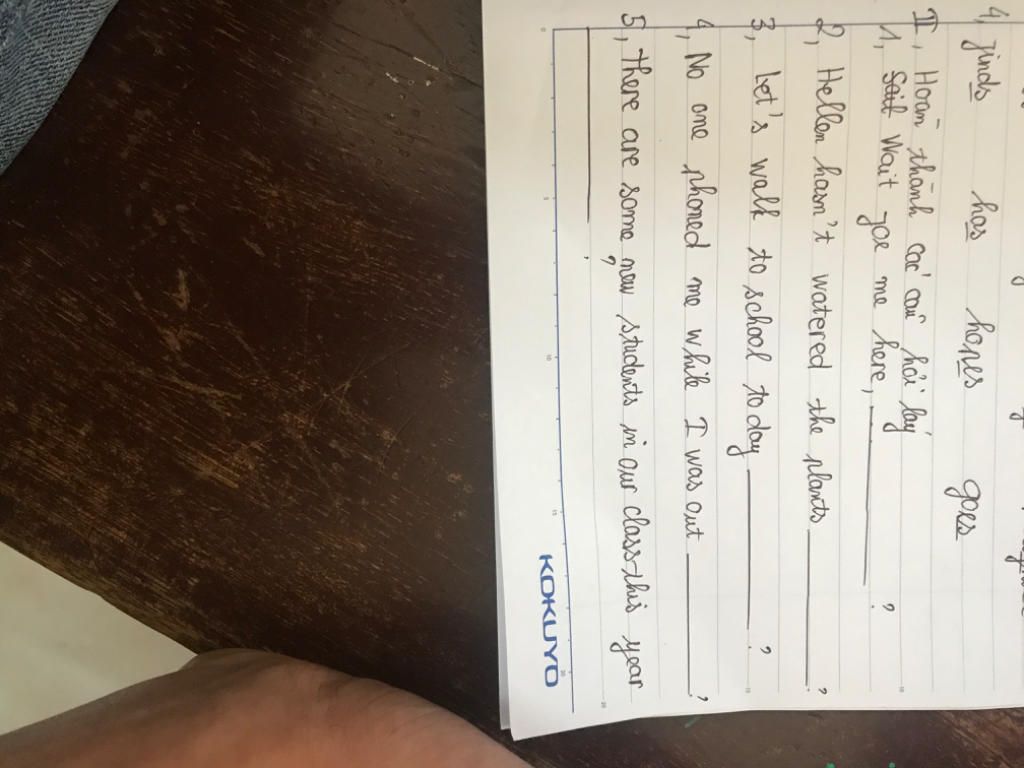 4, finds has hones goes
II, Hoàn thành các câu hỏi láy
1, Sait Wait for me here, ?
2, Hellen hasn't watered the plants ?
3, Let's walk to school today ?
4, No one phoned me while I was out ?
5, There are some new students in our class this year
?
KOKUYO